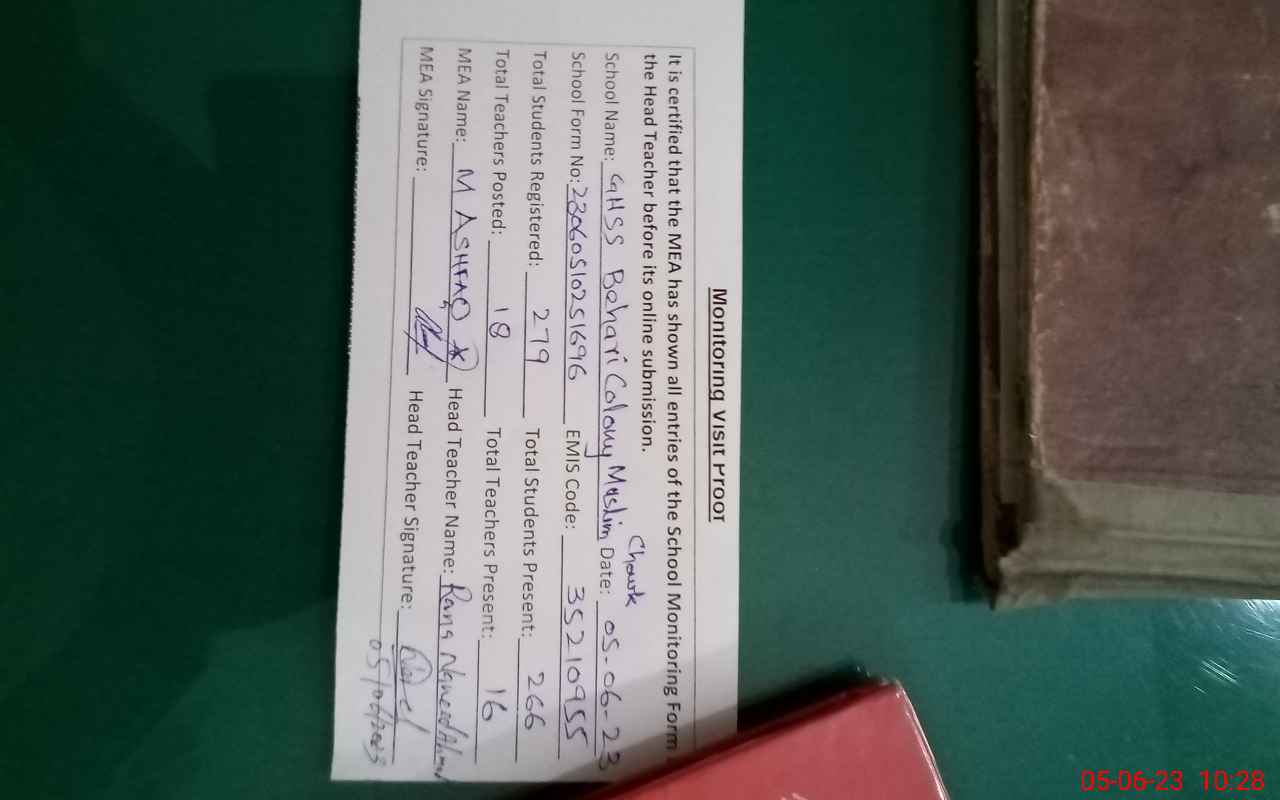 Monitoring Visit Proof
It is certified that the MEA has shown all entries of the School Monitoring Form
the Head Teacher before its online submission.
School Name: GHSS Behari Colony Muslim Chowk Date: 05-06-23
School Form No: 23060510251696 EMIS Code: 35210955
Total Students Registered: 279 Total Students Present: 266
Total Teachers Posted: 18 Total Teachers Present: 16
MEA Name: M ASHFAQ Head Teacher Name: Rana Naveed Ahmad
MEA Signature: Head Teacher Signature:
05/06/2023
05-06-23 10:28